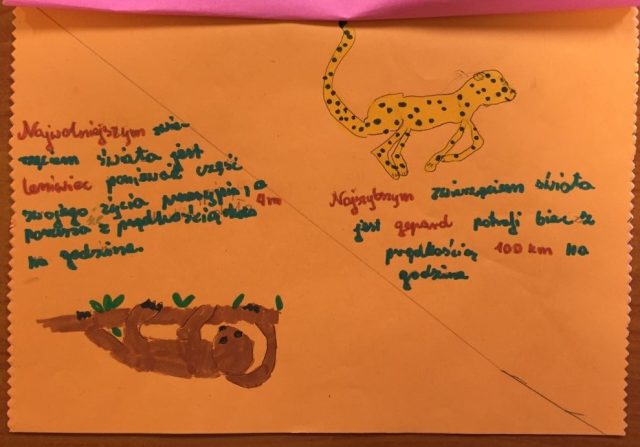 Najwolniejszym zwie-
rzęciem świata jest
leniwiec ponieważ część
swojego życia przesypia i a
porusza z prędkością około 4 m
na godzinę.
Najszybszym zwierzęciem świata
jest gepard potrafi biec z
prędkością 100 km na
godzinę